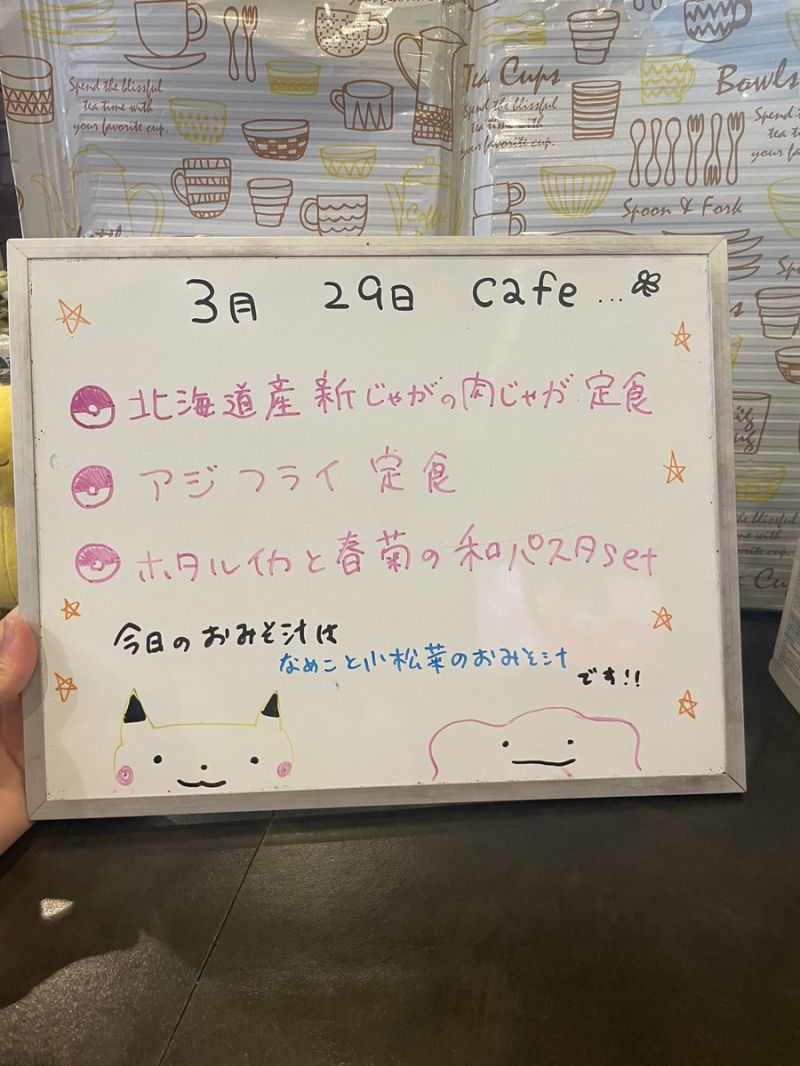 Spend the blissful
tea time with
your favorite cup.
Tea Cups
Spend the blissful
tea time with
your favorite cup.
Bowls
Spend the
tea
your fav
Coffee
Spoon & Fork
3月 29日 cafe ...
北海道産 新じゃがの肉じゃが 定食
アジフライ 定食
ホタルイカと春菊の和パスタset
今日のおみそ汁は
なめこと小松菜のおみそ汁
です!!